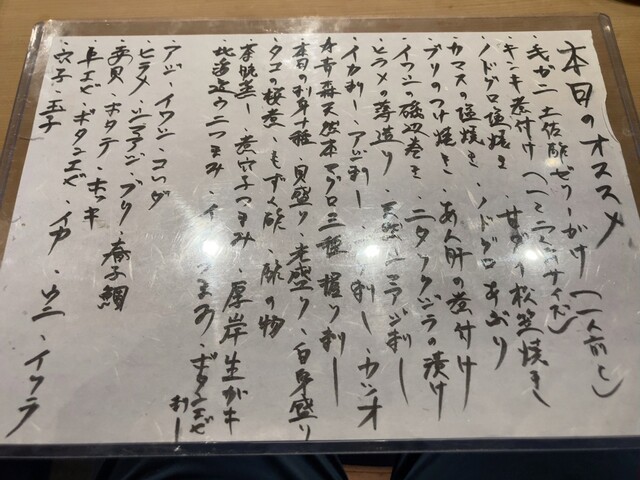 本日のオススメ
・毛ガニ 土佐酢ゼリーがけ(一人前〜)
・キンキ煮付け(一〜二人サイズ)
・ノドグロ塩焼き ・甘ダイ松笠焼き
・カマスの塩焼き ・ノドグロあぶり
・ブリのつけ焼き ・あん肝の煮付け
・イワシの磯辺巻き ・ニタリクジラの漬け
・ヒラメの薄造り ・天然シマアジ刺し
・イカ刺し・アジ刺し 刺し・カツオ
・青森天然本マグロ三種握り刺し
・本日の刺身十種・貝盛り・光盛り・白身盛り
・タコの桜煮・もずく酢 ・酢の物
・茶碗蒸し・煮穴子つまみ ・厚岸生ガキ
・北海道ウニつまみ・イ つまみ・ボタンエビ刺し
・アジ・イワシ・コハダ
・ヒラメ・シマアジ・ブリ・春子鯛
・赤貝・ホタテ・ホッキ
・車エビ・ボタンエビ・イカ・ウニ・イクラ
・穴子・玉子